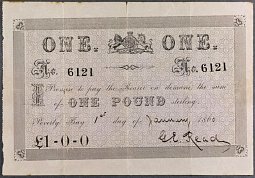 ONE. ONE.
No. 6121 No. 6121
I Promise to pay the Bearer on demand the sum
of ONE POUND sterling.
Poverty Bay 1st day of January 186
£1-0-0 G.E. Read